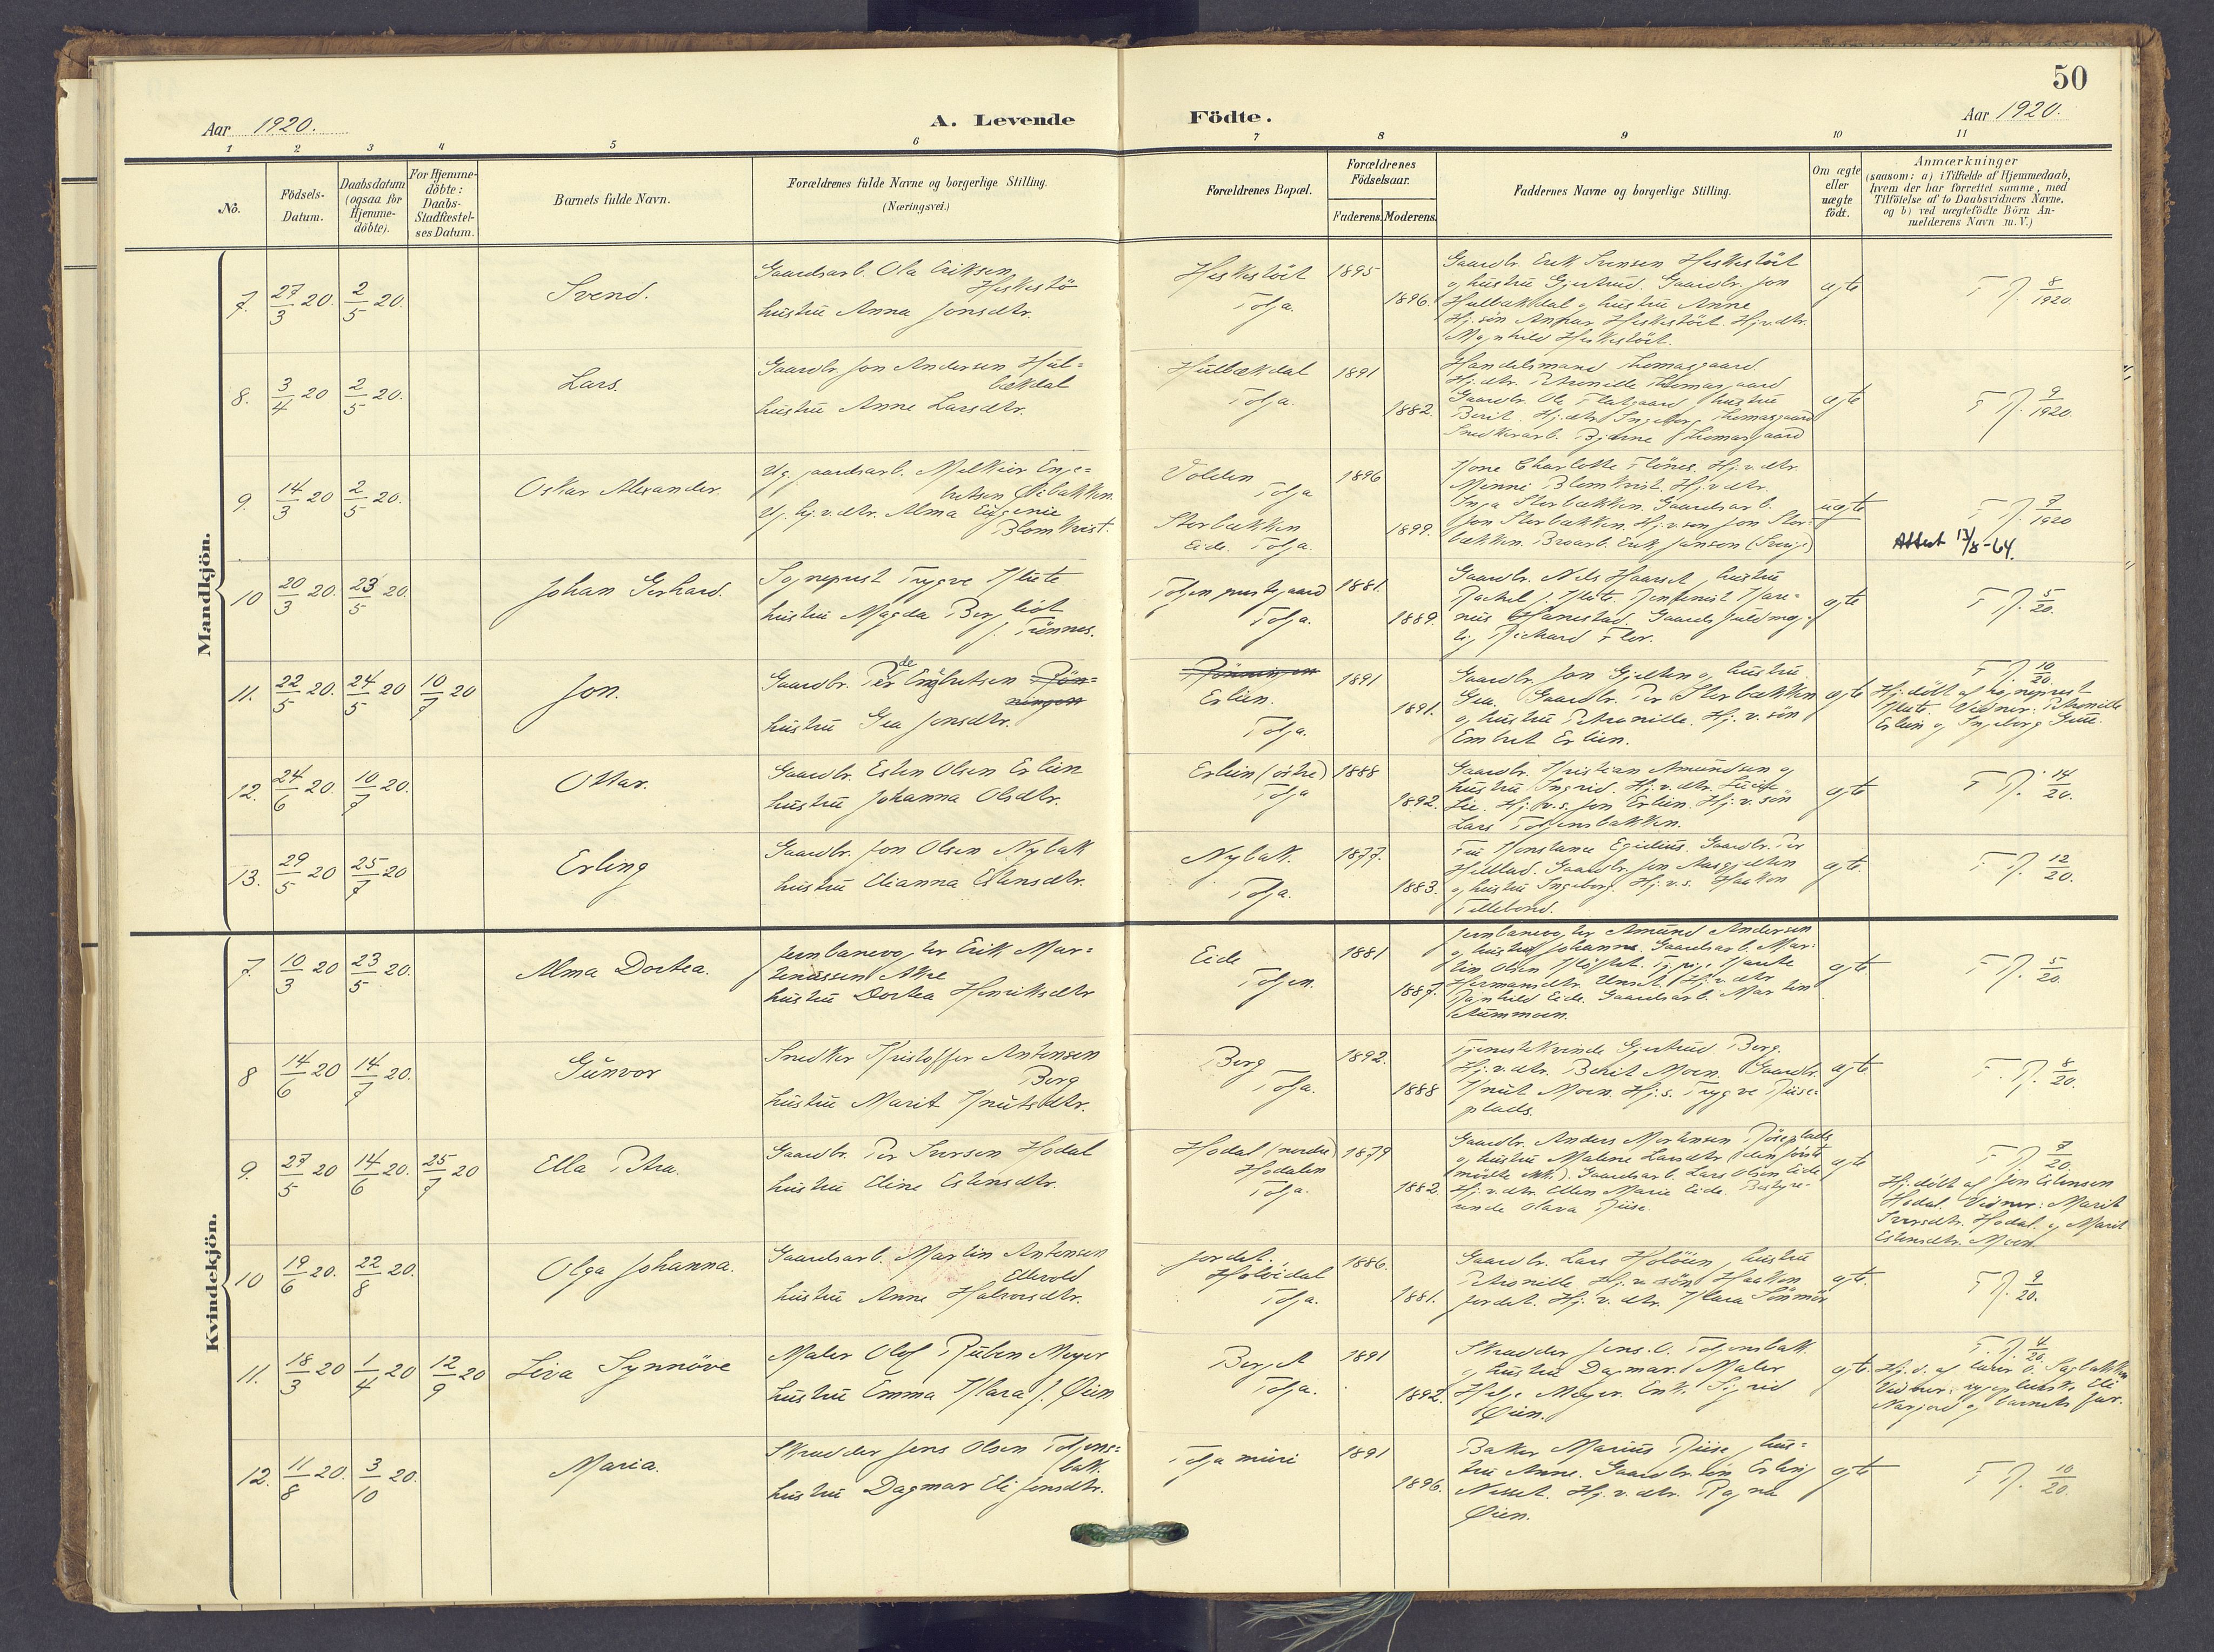 50
Aar 1920.
A. Levende
Födte.
Aar 1920.
1 2 3 4 5 6 7 8 9 10 11
No.
Födsels-
Datum.
Daabsdatum
(ogsaa for
Hjemme-
döbte).
For Hjemme-
döbte:
Daabs-
Stadfæstel-
ses Datum.
Barnets fulde Navn.
Forældrenes fulde Navne og borgerlige Stilling.
(Næringsvei.)
Forældrenes Bopæl.
Forældrenes
Födselsaar.
Faderens. Moderens.
Faddernes Navne og borgerlige Stilling.
Om ægte
eller
uægte
födt.
Anmærkninger
(saasom: a) i Tilfælde af Hjemmedaab,
hvem der har forrettet samme, med
Tilföielse af to Daabsvidners Navne,
og b) ved uægtefödte Börn An-
melderens Navn m. V.)
Mandkjön.
7. 27/3 20. 2/5 20. Svend.
Gaardsarb. Ola Eriksen
Heskestö
hustru Anna Jonsdtr.
Heskestöit
Tolga.
1895
1896.
Gaardbr. Erik Svensen Heskestöit
og hustru Gjertrud. Gaardbr. Jon
Hulbækdal og hustru Anne
Heskestöit. Hj.v.dtr.
Magnhild Heskestöit.
ægte
F R. 8/1920.
8. 3/4 20 2/5 20. Lars.
Gaardbr. Jon Andersen Hul=
bækdal
hustru Anne Larsdtr.
Hulbækdal
Tolga.
1891
1882.
Handelsmand Thomasgaard
Hj.dtr. Petronille Thomasgaard
Gaardbr. Ole Flatgaard hustru
Berit. Hj.dtr. Ingeborg Thomasgaard
Snedkerarb. Bjarne Thomasgaard
ægte
F R. 9/1920.
9. 14/3 20 2/5 20. Oskar Alexander.
Ug. gaardsarb. Melkior Enge=
bretsen Øibakken
Ug. hj.v.dtr. Alma Eugenie
Blomkvist.
Volden
Tolga
Storbækken
Eide. Tolga.
1896
1899.
Kone Charlotte Flönes. Hj.v.dtr.
Minni Blomkvist. Hj.v.dtr.
Inga Storbækken. Gaardsarb.
Jon Storbækken. Hj.v.søn Jon Stor=
bækken. Broarb. Erik Janson (Sverige)
uægte
F R. 7/1920
Attest 13/8-64.
10 20/3 20. 23/5 20. Johan Gerhard.
Sogneprest Trygve Klüte
hustru Magda Bergliot
f. Tönnes.
Tolgen prestegaard
Tolga.
1881.
1889.
Gaardbr. Nils Haarset, hustru
Rachel f. Klüte.
Hanestad. Gaards fuldmæg=
tig Richard Flor.
ægte
F R. 5/20.
11. 22/5 20. 24/5 20 10/7 20 Jon.
Gaardbr. Peder Engebretsen Rön=
ningen
hustru Gea Jonsdtr.
Rönningen
Erlien.
Tolga.
1891
1891.
Gaardbr. Jon Gjelten og hustru
Gea. Gaardbr. Per Storbækken
og hustru Petronille. Hj.v.sön
Embret Erlien.
ægte
F R. 10/20.
Hj.döbt af sogneprest
Klüte. Vidner: Petronille
Erlien og Ingeborg
12. 24/6 20. 10/7 20. Ottar.
Gaardbr. Esten Olsen Erlien
hustru Johanna Olsdtr.
Erlien (östre)
Tolga
1888
1892.
Gaardbr. Kristian Amundsen og
hustru Ingrid. Hj.v.dtr. Lucie
Lie. Hj.v.s. Jon Erlien. Hj.v.sön
Lars Tolgensbakken.
ægte
F R. 14/20.
13. 29/5 20 25/7 20 Erling
Gaardbr. Jon Olsen Nybak
hustru Elianna Estensdtr.
Nybak.
Tolga.
1877.
1883.
Fru Konstance Egidius. Gaardbr. Per
Gaardbr. Jon Aasgjelten
og hustru Ingeborg. Hj.v.s. Haakon
Tellebond.
ægte.
F. R. 12/20.
Kvindekjön.
7. 10/3 20 23/5 20. Alma Dortea.
Jernbanevogter Erik Mar=
tinussen Akre
hustru Dortea Henriksdtr
Eide
Tolgen.
1881
1887.
Jernbanevogter Amund Andersen
og hustru Johanne. Gaardsarb. Mar=
tin Olsen Klöftet. Tj.pige Marte
Hermansdtr. Unset. Hj.v.dtr
Ragnhild Eide. Gaardsarb. Martin
Aummoen.
ægte
F R. 5/20.
8 14/6 20 14/7 20. Gunvor
Snedker Kristoffer Antonsen
Berg
hustru Marit Knutsdtr.
Berg
Tolga.
1892.
1888
Tjenestekvinde Gjertrud Berg.
Hj.v.dtr. Berit Moen. Gaardbr.
Knut Moen. Hj.s. Trygve Riise=
plads.
ægte
F. R. 8/20.
9. 27/5 20 14/6 20. 25/7 20 Ella Petra.
Gaardbr. Per Iversen Hodal
hustru Eline Estensdtr.
Hodal (nordre)
Hodalen
Tolga.
1879
1882.
Gaardbr. Anders Mortensen Röseplads
og hustru Malene Larsdtr. (den förste
mötte ikke). Gaardsarb. Lars Olsen Eide
Hj.v.dtr. Ellen Marie Eide. Bestyre=
rinde Olava Riise.
ægte
F R. 7/20.
Hj.döbt af Jon Estensen
Hodal. Vidner: Marit
Iversdtr. Hodal og Marit
Estensdtr. Moen.
10 19/6 20. 22/8 20. Olga Johanna.
Gaardsarb. Martin Antonsen
Ellevold
hustru Anne Halvorsdtr.
Jordet.
Holöidal
Tolga.
1886.
1881.
Gaardbr. Lars Holöien, hustru
Petronille Hj.v.sön Haakon
Jordet. Hj.v.dtr. Klara Sönmör
ægte.
F R. 9/20.
11. 18/3 20 1/4 20 12/9 20 Liva Synnöve
Maler Olof Ruben Meyer
hustru Emma Klara f. Øien
Berget
Tolga.
1891
1892.
Skrædder Jens O. Tolgensbak
og hustru Dagmar. Maler
Helge Meyer. Enk. Sigrid
Øien.
ægte.
F. R. 4/20.
Hj.d. af lærer O. Sagbakken
Vidner: sygepleierske Eli
Narjord og barnets far.
12. 11/8 20. 3/10 20. Maria.
Skrædder Jens Olsen Tolgens=
bak.
hustru Dagmar Eli Jensdtr.
Tolga
1891
1896.
Baker Marius Riise, hus=
tru Anne. Gaardbr.søn Erling
Nesset. Hj.v.dtr. Ragna
Øien.
ægte
F R. 10/20.